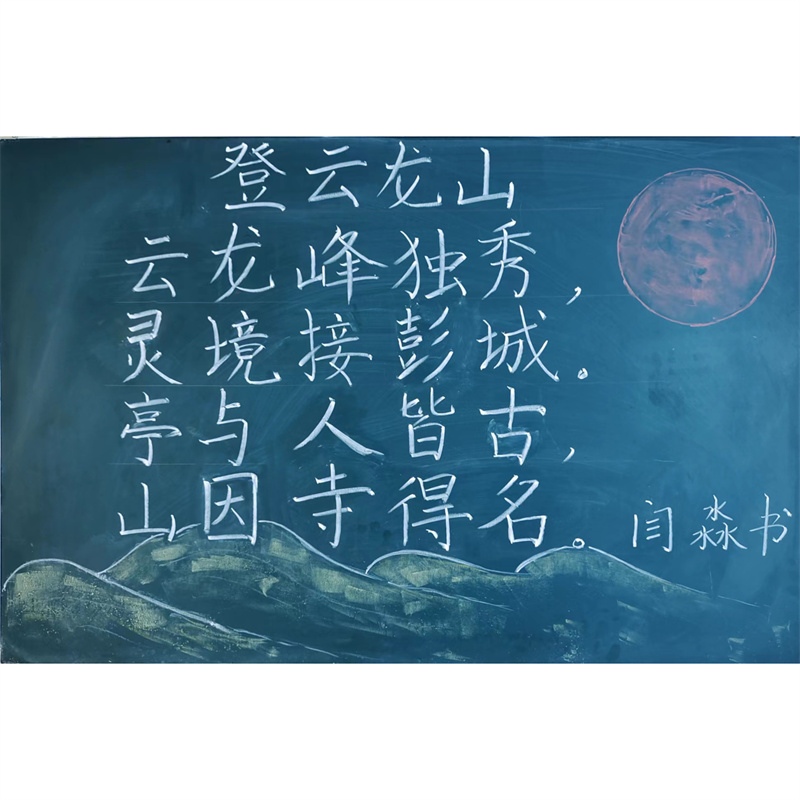 登云龙山
云龙峰独秀，
灵境接彭城。
亭与人皆古，
山因寺得名。
闫淼书